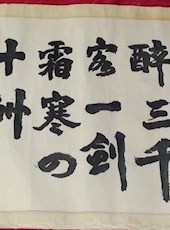 醉三千
客一劍
霜寒四
十州